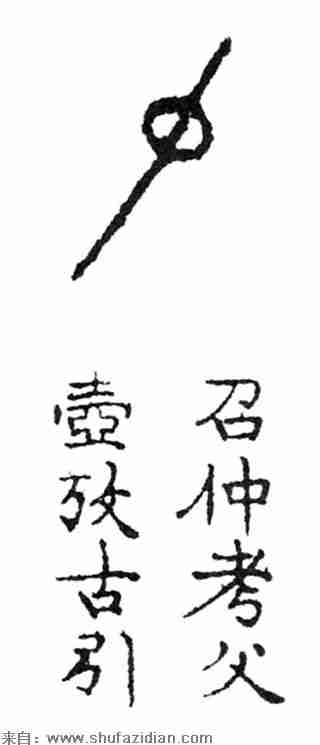 召仲考父
壺攷古引
来自：www.shufazidian.com